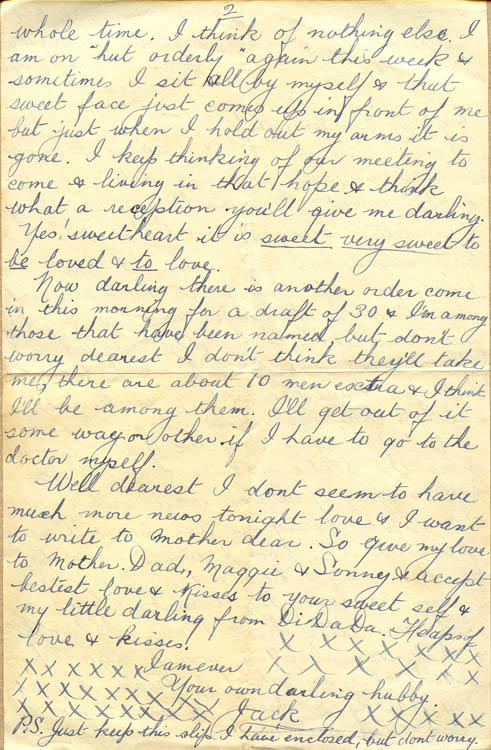 2
whole time. I think of nothing else. I
am on "hut orderly" again this week &
sometimes I sit all by myself & that
sweet face just comes up in front of me
but just when I hold out my arms it is
gone. I keep thinking of our meeting to
come & living in that hope & think
what a reception you'll give me darling.
Yes! sweetheart it is sweet very sweet to
be loved & to love.
Now darling there is another order come
in this morning for a draft of 30 & I'm among
those that have been named, but don't
worry dearest I don't think they'll take
me, there are about 10 men extra & I think
I'll be among them. I'll get out of it
some way or other if I have to go to the
doctor myself.
Well dearest I dont seem to have
much more news tonight love & I want
to write to Mother dear. So give my love
to Mother. Dad, Maggie & Sonney & accept
bestest love & kisses to your sweet self &
my little darling from DiDaDa. Heaps of
love & kisses. X X X X X X X
X X X X X X I am ever X X X X X X
X X X X X X X Your own darling hubby.
X X X X X X X X X Jack X X X X X
P.S. Just keep this slip I have enclosed, but dont worry.